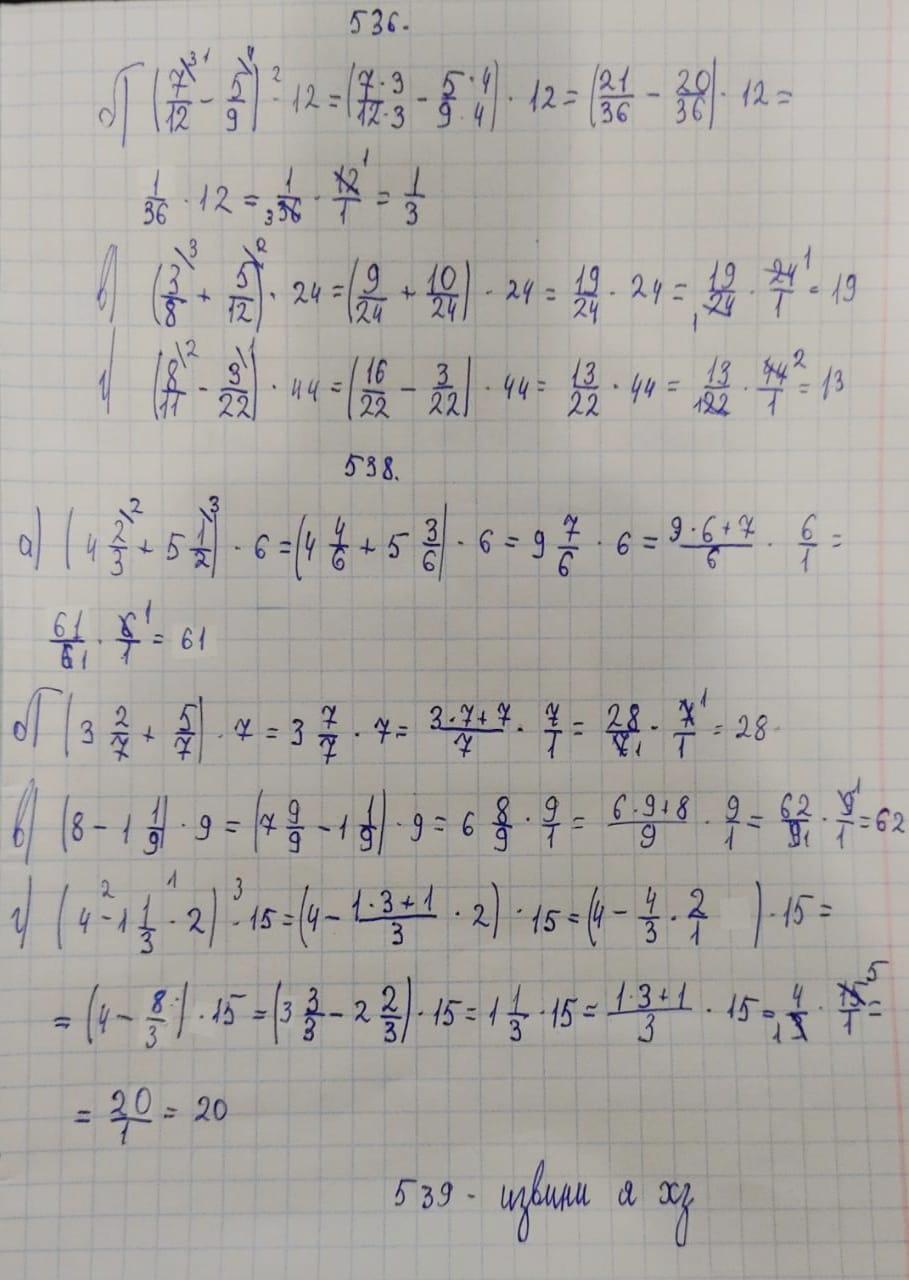 536.
б) (7/12 \3 - 5/9 \4) ² · 12 = (7·3/12·3 - 5·4/9·4) · 12 = (21/36 - 20/36) · 12 =
1/36 · 12 = 1/36 3 · 12/1 1 = 1/3
в) (3/8 \3 + 5/12 \2) · 24 = (9/24 + 10/24) · 24 = 19/24 · 24 = 19/24 1 · 24/1 1 = 19
г) (8/11 \2 - 3/22 \1) · 44 = (16/22 - 3/22) · 44 = 13/22 · 44 = 13/22 1 · 44/1 2 = 13
538.
а) (4 2/3 \2 + 5 1/2 \3) · 6 = (4 4/6 + 5 3/6) · 6 = 9 7/6 · 6 = 9·6+7/6 · 6/1 =
61/6 1 · 6/1 1 = 61
б) (3 2/7 + 5/7) · 7 = 3 7/7 · 7 = 3·7+7/7 · 7/1 = 28/7 1 · 7/1 1 = 28
в) (8 - 1 1/9) · 9 = (7 9/9 - 1 1/9) · 9 = 6 8/9 · 9/1 = 6·9+8/9 · 9/1 = 62/9 1 · 9/1 1 = 62
г) (4 -² 1 1/3 ·¹ 2) ·³ 15 = (4 - 1·3+1/3 · 2) · 15 = (4 - 4/3 · 2/1) · 15 =
= (4 - 8/3) · 15 = (3 3/3 - 2 2/3) · 15 = 1 1/3 · 15 = 1·3+1/3 · 15 = 4/3 1 · 15/1 5 =
= 20/1 = 20
539 - извини я хз